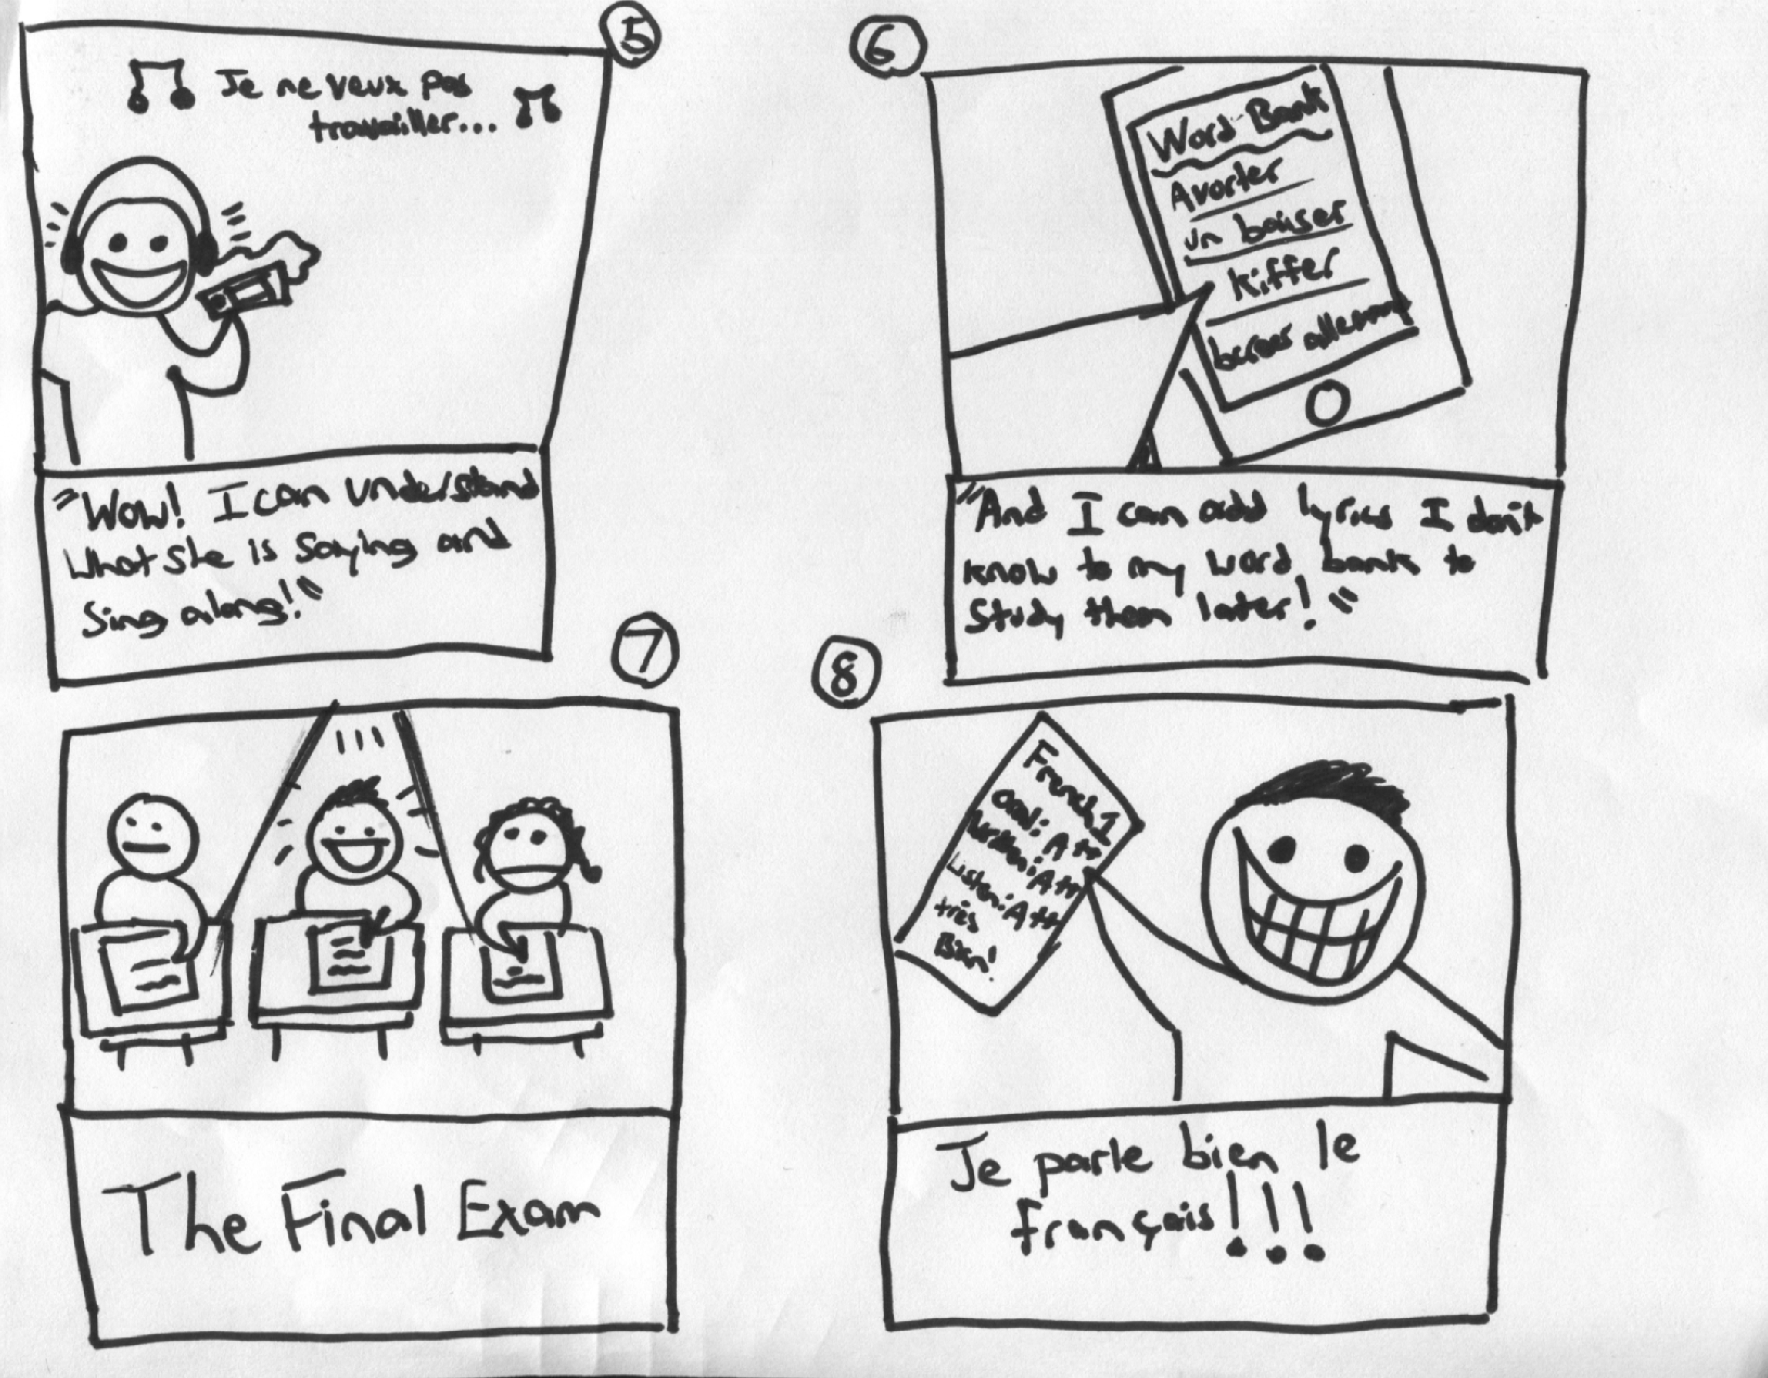 5
Je ne veux pas
travailler...
"Wow! I can understand
what she is saying and
sing along!"
6
Word Bank
Avorter
un baiser
kiffer
"And I can add lyrics I don't
know to my word bank to
study them later!"
7
The Final Exam
8
French 1
oral: A++
written: A++
Listen: A++
très
Bien!
Je parle bien le
français!!!